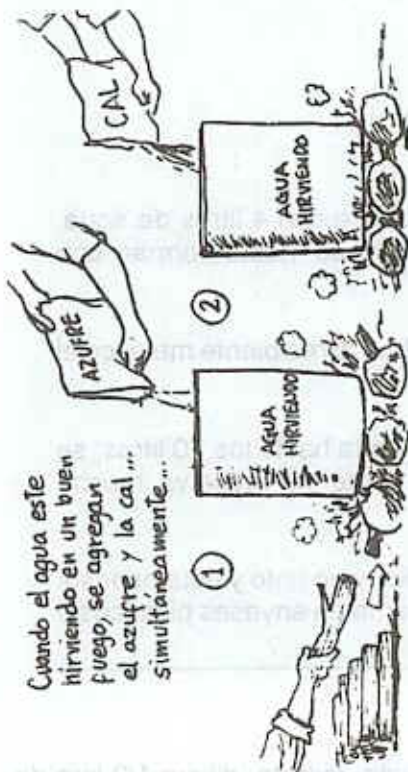 Cuando el agua este
hirviendo en un buen
fuego, se agregan
el azufre y la cal...
simultáneamente...
AZUFRE
CAL
1
AGUA
HIRVIENDO
2
AGUA
HIRVIENDO